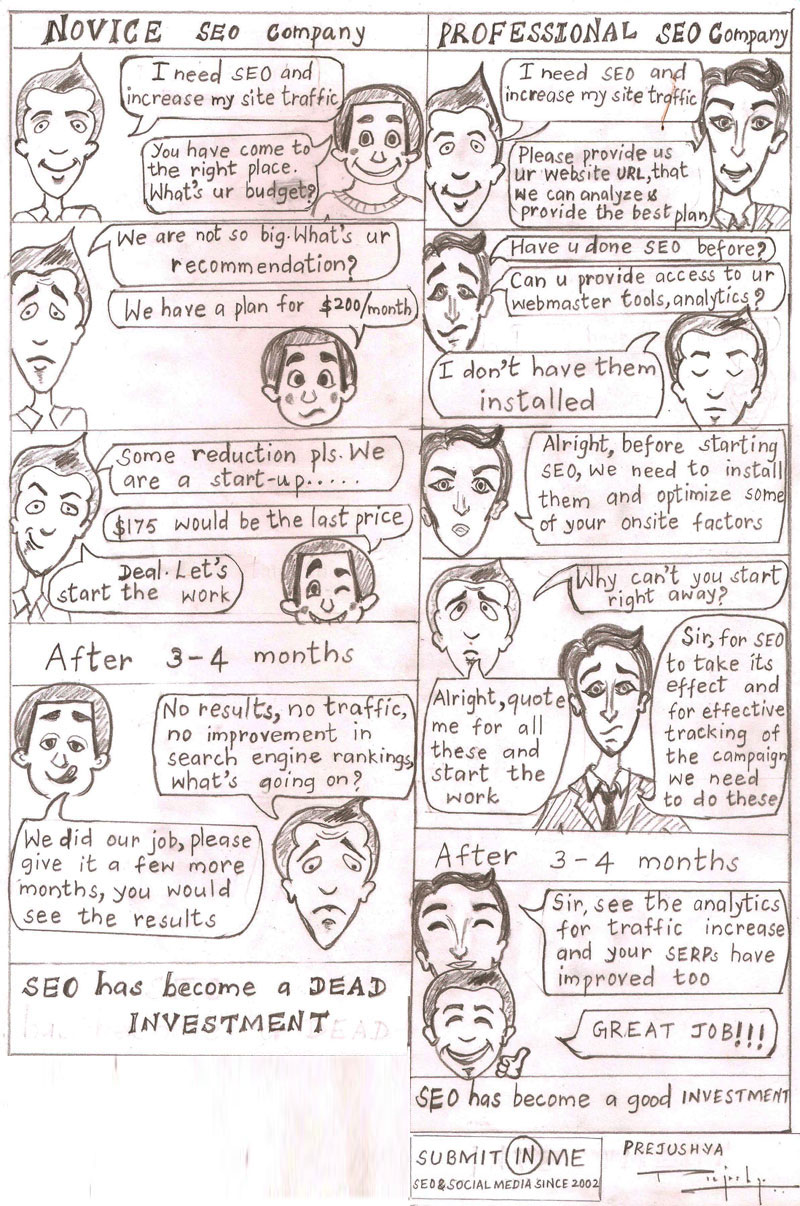 NOVICE SEO Company
I need SEO and
increase my site traffic
You have come to
the right place.
What's ur budget?
We are not so big. What's ur
recommendation?
We have a plan for $200/month
Some reduction pls. We
are a start-up.....
$175 would be the last price
Deal. Let's
start the work
After 3-4 months
No results, no traffic,
no improvement in
search engine rankings,
what's going on?
We did our job, please
give it a few more
months, you would
see the results
SEO has become a DEAD
INVESTMENT
PROFESSIONAL SEO Company
I need SEO and
increase my site traffic
Please provide us
ur website URL, that
we can analyze &
provide the best plan
Have u done SEO before?
Can u provide access to ur
webmaster tools, analytics?
I don't have them
installed
Alright, before starting
SEO, we need to install
them and optimize some
of your onsite factors
Why can't you start
right away?
Sir, for SEO
to take its
effect and
for effective
tracking of
the campaign
we need
to do these
Alright, quote
me for all
these and
start the
work
After 3-4 months
Sir, see the analytics
for traffic increase
and your SERPs have
improved too
GREAT JOB!!!
SEO has become a good INVESTMENT
SUBMIT IN ME
SEO & SOCIAL MEDIA SINCE 2002
PREJUSHYA